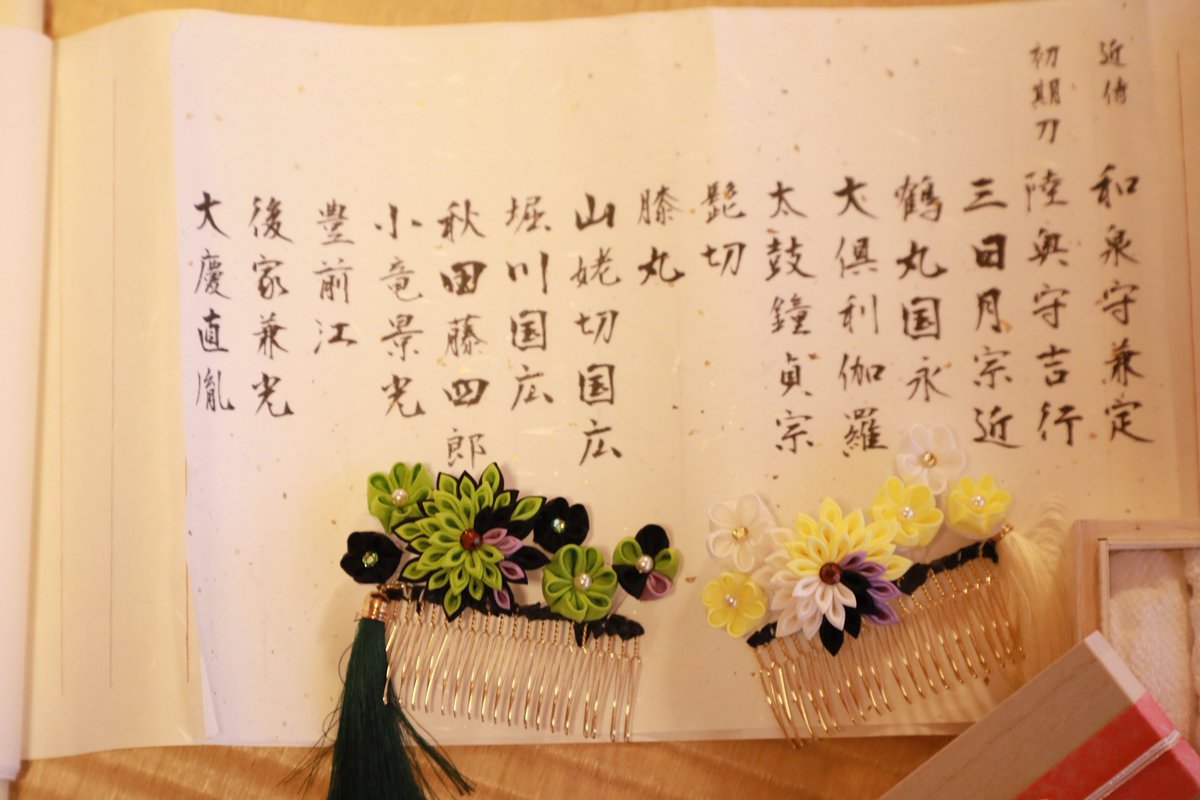 近侍 和泉守兼定
初期刀 陸奥守吉行
三日月宗近
鶴丸国永
大倶利伽羅
太鼓鐘貞宗
髭切
膝丸
山姥切国広
堀川国広
秋田藤四郎
小竜景光
豊前江
後家兼光
大慶直胤